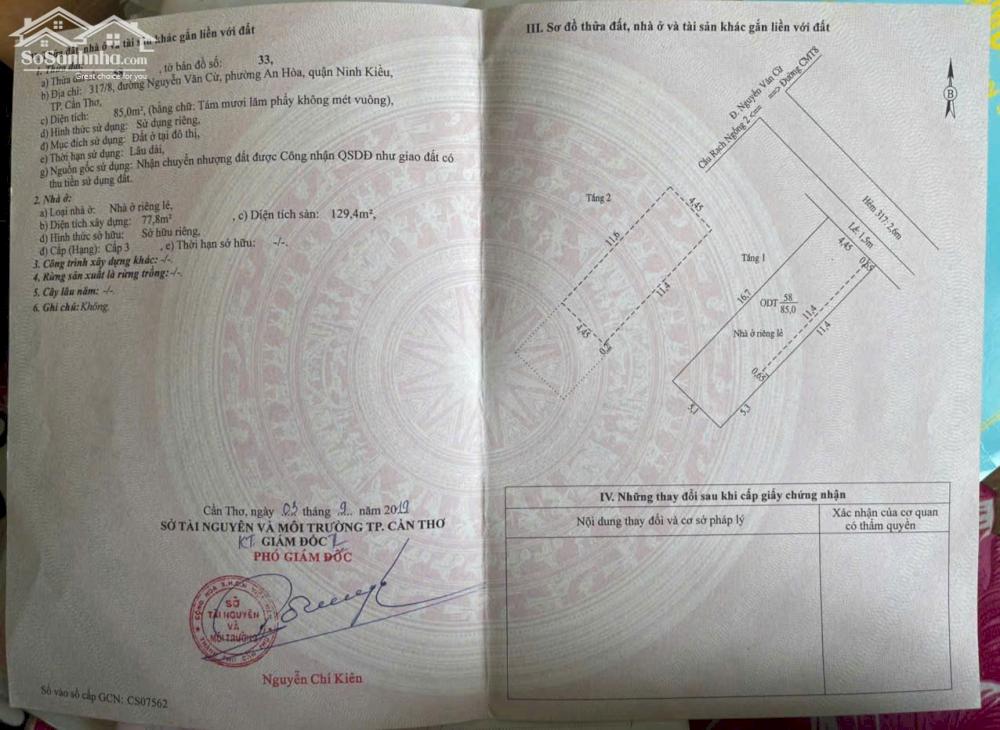 SoSanhnha.com
Great choice for you
Thửa đất, nhà ở và tài sản khác gắn liền với đất
1. Thửa đất:
a) Thửa đất số: , tờ bản đồ số: 33,
b) Địa chỉ: 317/8, đường Nguyễn Văn Cừ, phường An Hòa, quận Ninh Kiều,
TP. Cần Thơ,
c) Diện tích: 85,0m², (bằng chữ: Tám mươi lăm phẩy không mét vuông),
d) Hình thức sử dụng: Sử dụng riêng,
đ) Mục đích sử dụng: Đất ở tại đô thị,
e) Thời hạn sử dụng: Lâu dài,
g) Nguồn gốc sử dụng: Nhận chuyển nhượng đất được Công nhận QSDĐ như giao đất có
thu tiền sử dụng đất.
2. Nhà ở:
a) Loại nhà ở: Nhà ở riêng lẻ,
b) Diện tích xây dựng: 77,8m² , c) Diện tích sàn: 129,4m²,
d) Hình thức sở hữu: Sở hữu riêng,
đ) Cấp (Hạng): Cấp 3 , e) Thời hạn sở hữu: -/-.
3. Công trình xây dựng khác: -/-.
4. Rừng sản xuất là rừng trồng: -/-.
5. Cây lâu năm: -/-.
6. Ghi chú: Không.
Cần Thơ, ngày 03 tháng 9 năm 2019
SỞ TÀI NGUYÊN VÀ MÔI TRƯỜNG TP. CẦN THƠ
KT. GIÁM ĐỐC
PHÓ GIÁM ĐỐC
SỞ
TÀI NGUYÊN
VÀ
MÔI TRƯỜNG
Nguyễn Chí Kiên
Số vào sổ cấp GCN: CS07562
III. Sơ đồ thửa đất, nhà ở và tài sản khác gắn liền với đất
B
Đ. Nguyễn Văn Cừ
Cầu Rạch Ngỗng 2 <== ==> Đường CMT8
Hẻm 317: 2,6m
Lề: 1,5m
Tầng 2
4,45
11,6
11,4
4,45
0,2
Tầng 1
4,45
0,65
16,7
ODT 58
85,0
11,4
11,4
Nhà ở riêng lẻ
0,65
5,1
5,3
IV. Những thay đổi sau khi cấp giấy chứng nhận
Nội dung thay đổi và cơ sở pháp lý
Xác nhận của cơ quan
có thẩm quyền